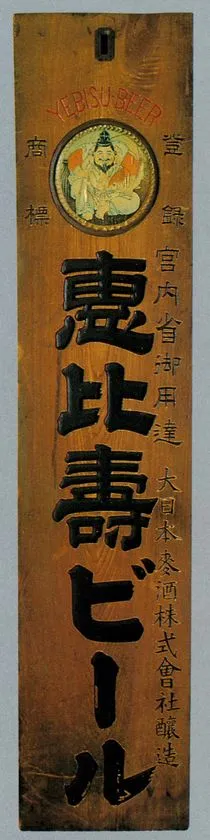 YEBISU·BEER
登録
商標
宮内省御用達 大日本麥酒株式會社釀造
恵比壽ビール